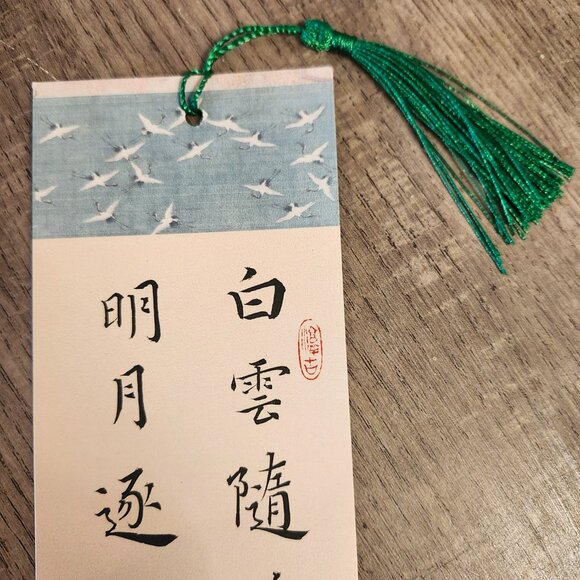 白雲隨
明月逐